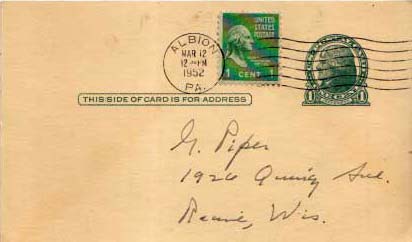 ALBION
MAR 12
12 - PM
1952
PA.
UNITED
STATES
POSTAGE
1 CENT 1
THIS SIDE OF CARD IS FOR ADDRESS
1 1
G. Piper
1926 Quincy Ave.
Racine, Wis.